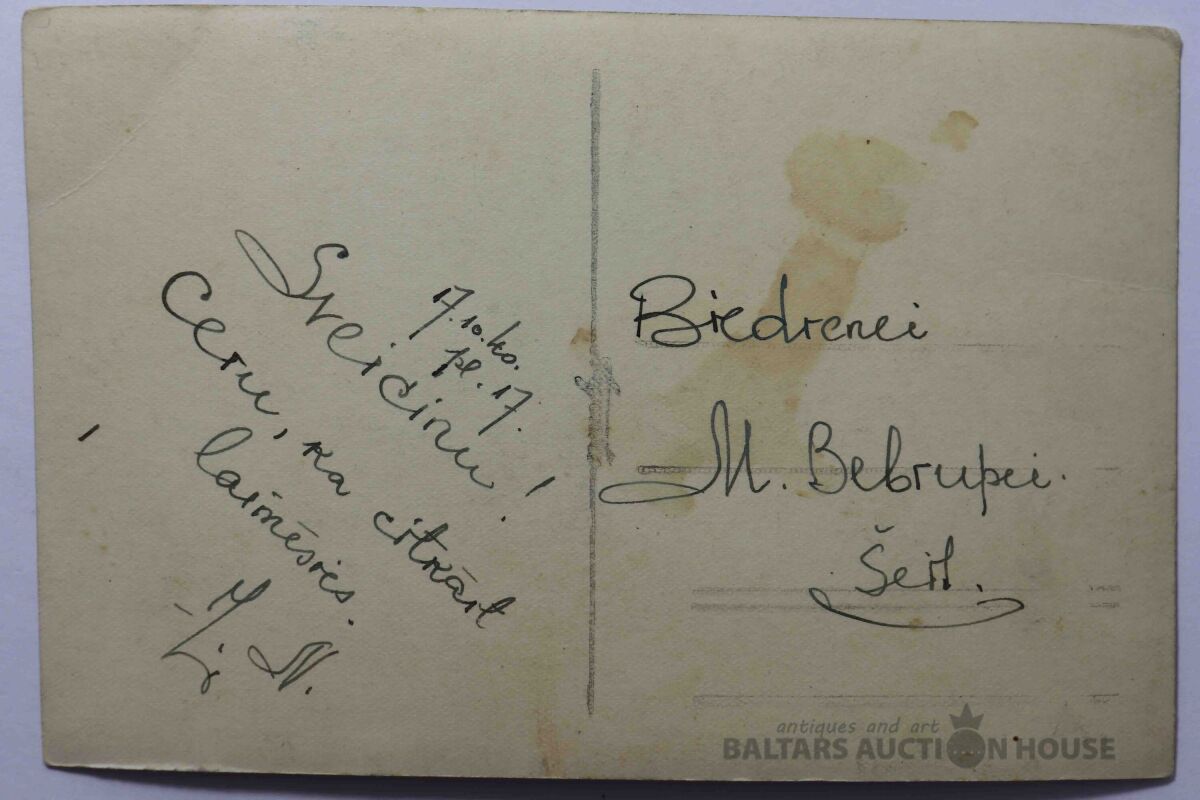 17. 10. ko.
pl. 17.
Sveicinu!
Ceru, ka citkārt
laimēsies.
N.
Biedrenei
M. Bebrupei.
Šeit.
antiques and art
BALTARS AUCTION HOUSE